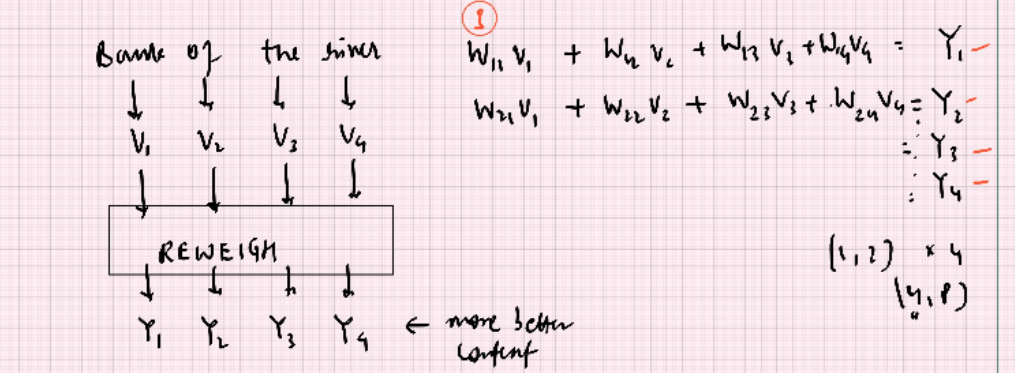 Bank of the river
V₁ V₂ V₃ V₄
REWEIGH
Y₁ Y₂ Y₃ Y₄ ← more better
context
1
W₁₁ V₁ + W₁₂ V₂ + W₁₃ V₃ + W₁₄ V₄ = Y₁ -
W₂₁ V₁ + W₂₂ V₂ + W₂₃ V₃ + W₂₄ V₄ = Y₂ -
= Y₃ -
: Y₄ -
(1, 2) * 4
(4, 8)